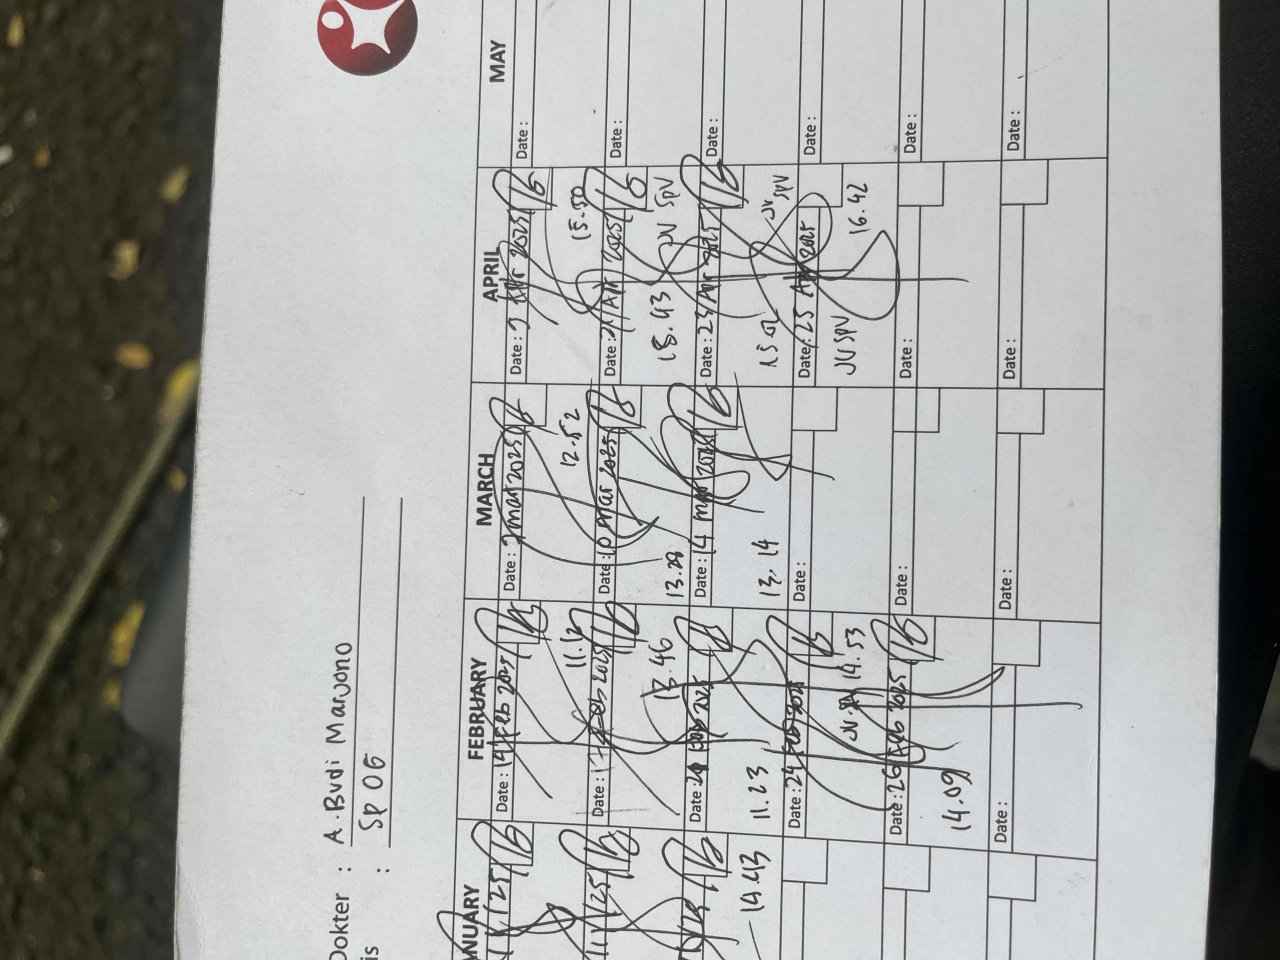 Dokter : A. Budi Marjono
is : SP OG
NUARY
FEBRUARY
MARCH
APRIL
MAY
14.43
Date : 14 Feb 2025
11.12
Date : 17 Feb 2025
13.46
Date : 20 Feb 2025
11.23
Date : 24 Feb 2025
14.53
Date : 26 Feb 2025
14.09
Date :
Date : 7 mar 2025
12.52
Date : 10 mar 2025
13.28
Date : 14 mar 2025
13.14
Date :
Date :
Date :
Date : Apr 2025
15.50
Date : 21 Apr 2025
18.43 JV SPV
Date : 23 Apr 2025
15.02 JV SPV
Date : 25 Apr 2025
JV SPV 16.42
Date :
Date :
Date :
Date :
Date :
Date :
Date :
Date :